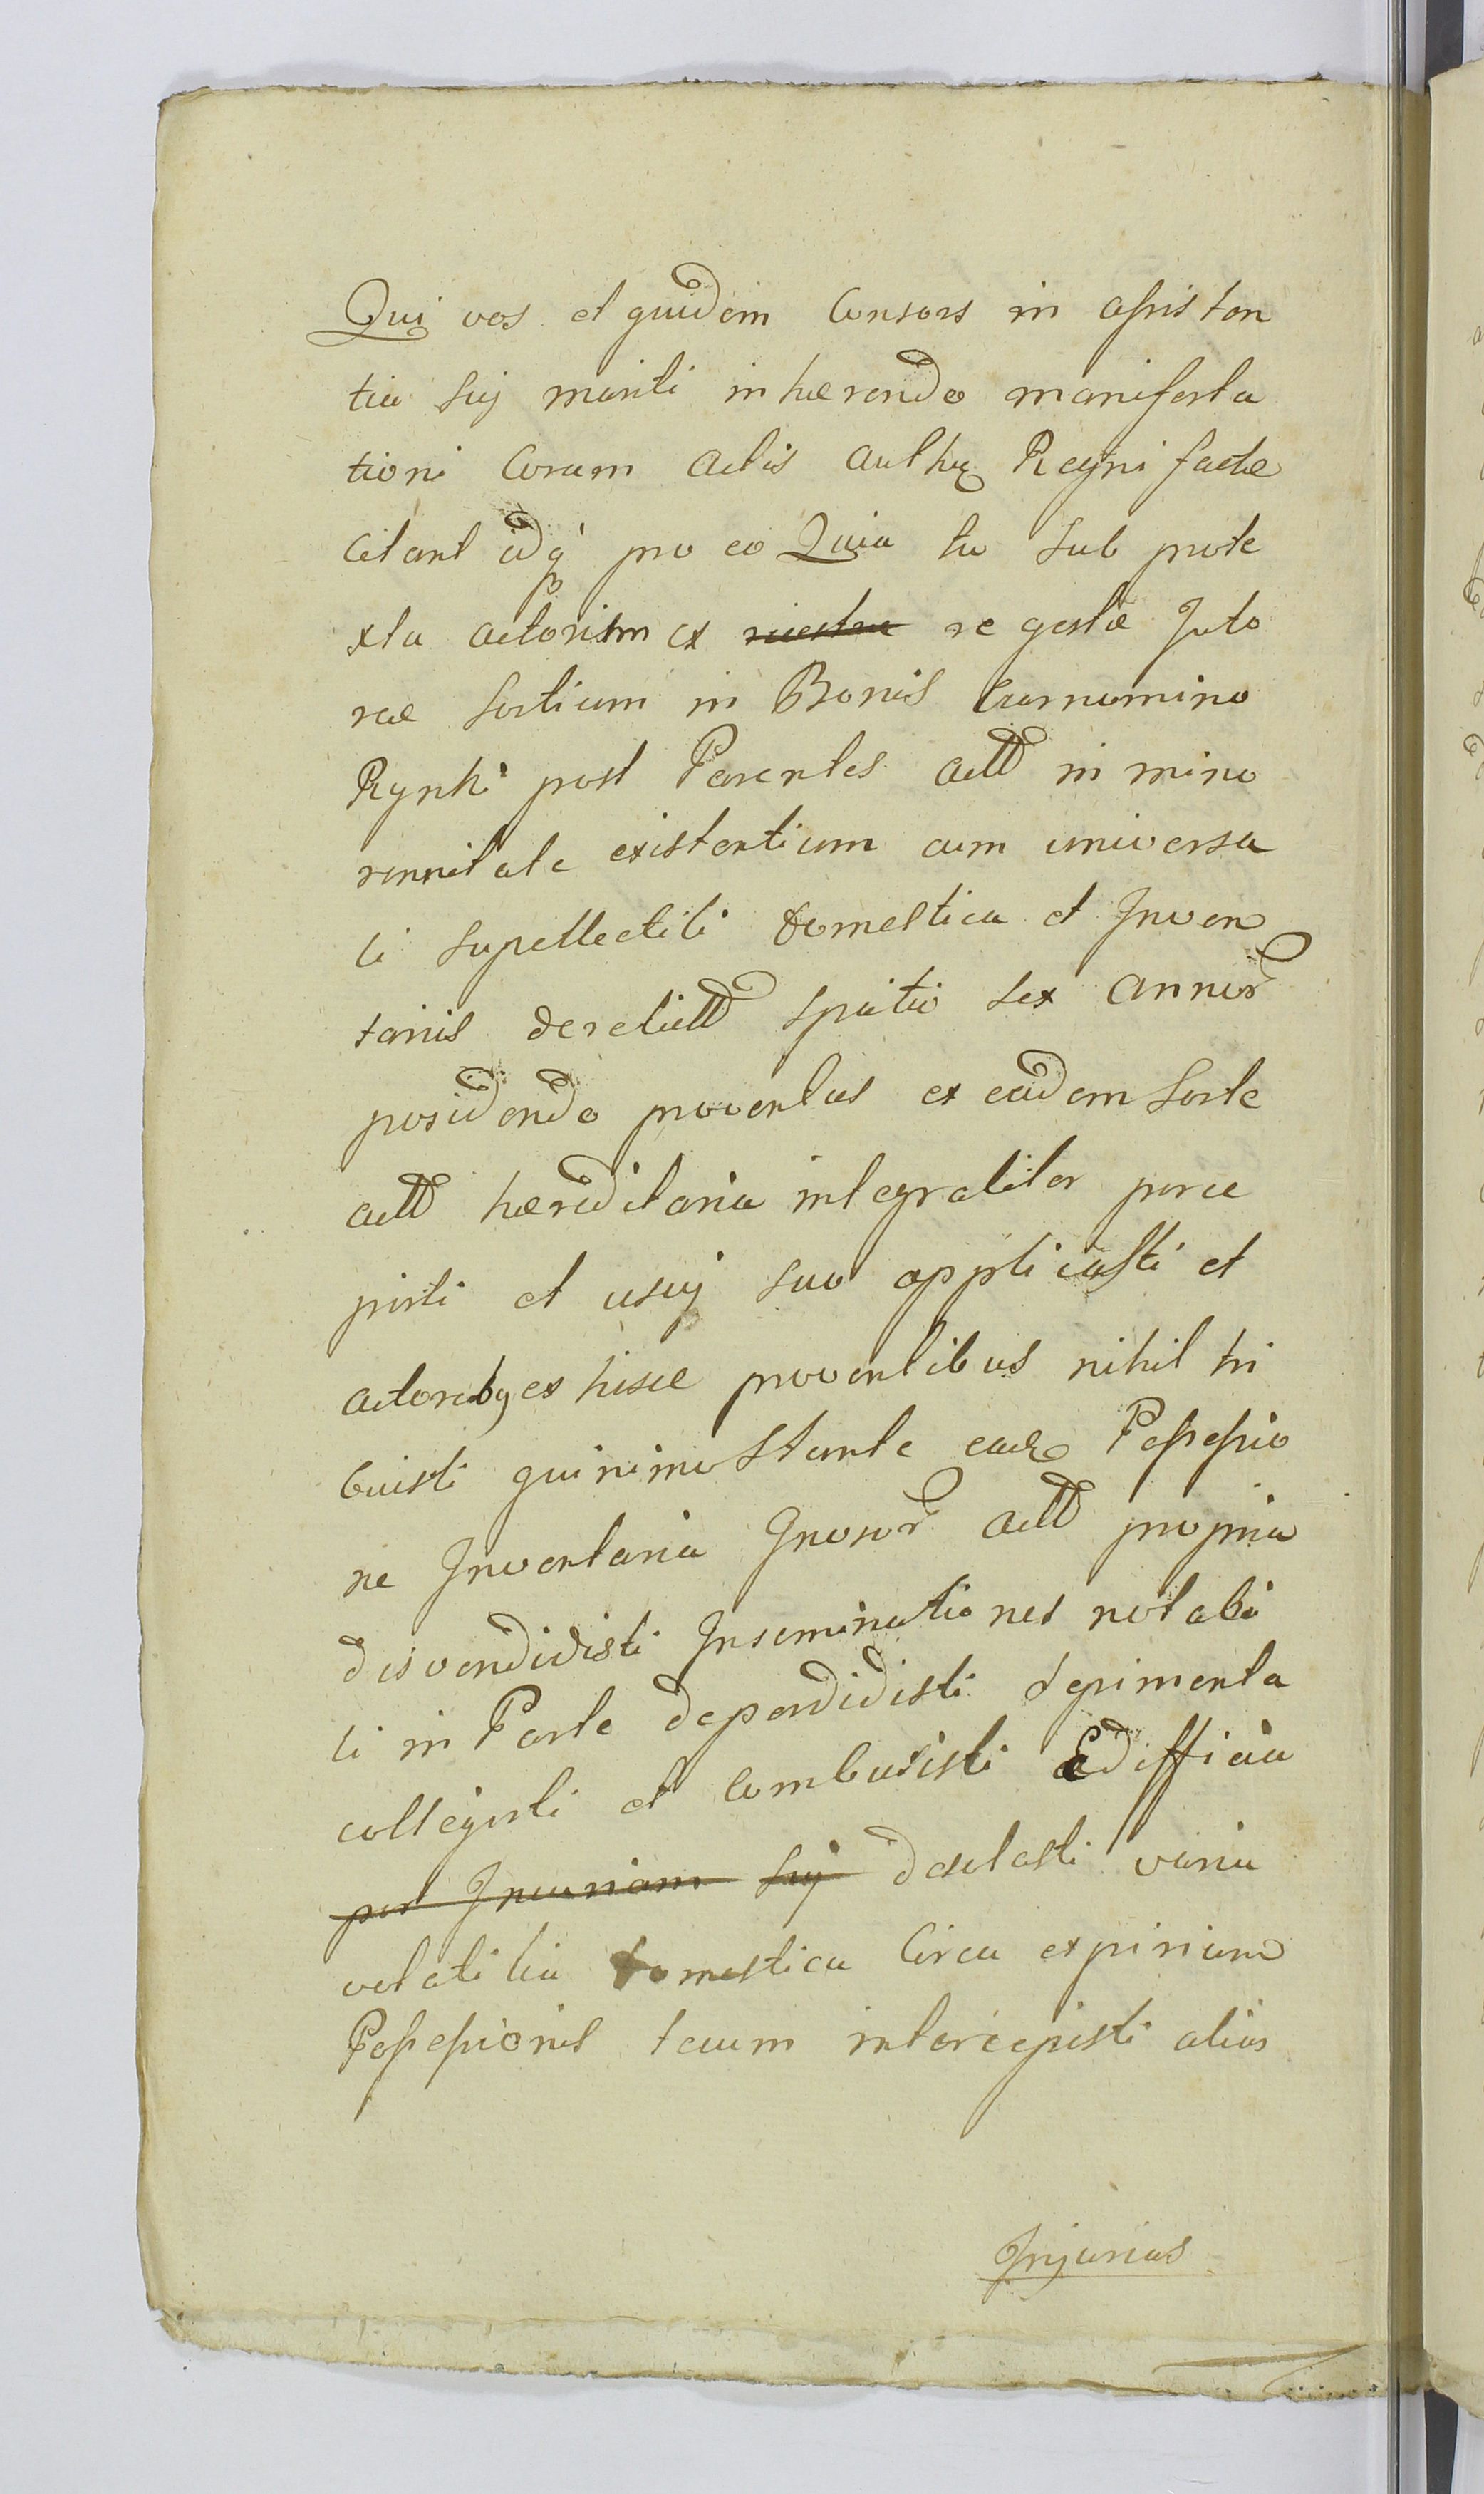 Qui vos et quidem Consors in assisten
tia sui mariti inhærendo manifesta
tioni Coram Actis Authcis Regni factæ
Citant idq pro eo Quia tu sub præte
xtu actorum ex re gestæ Tuto
ræ Sortium in Bonis Czarnomino
Rynki post Parentes actt in mino
rennitate existentium cum universa
li supellectili domestica et Inven
tariis derelictt spatio sex Annor
posidendo proventus ex eadem Sorte
actt hæreditaria integraliter perce
pisti et usui suo applicasti et
actoreby ex hisce proventibus nihil tri
buisti quinimo Stante eade Possessio
ne Inventaria Gnosor actt propria
disvendidisti Inseminationes notabi
li in Parte deperdidisti sepimenta
collegisti et Combusisti Ædifficia
per Incuriam sui desolasti varia
volatilia domestica Circa expirium
Possessionis tuum intercepisti alias
Injurias